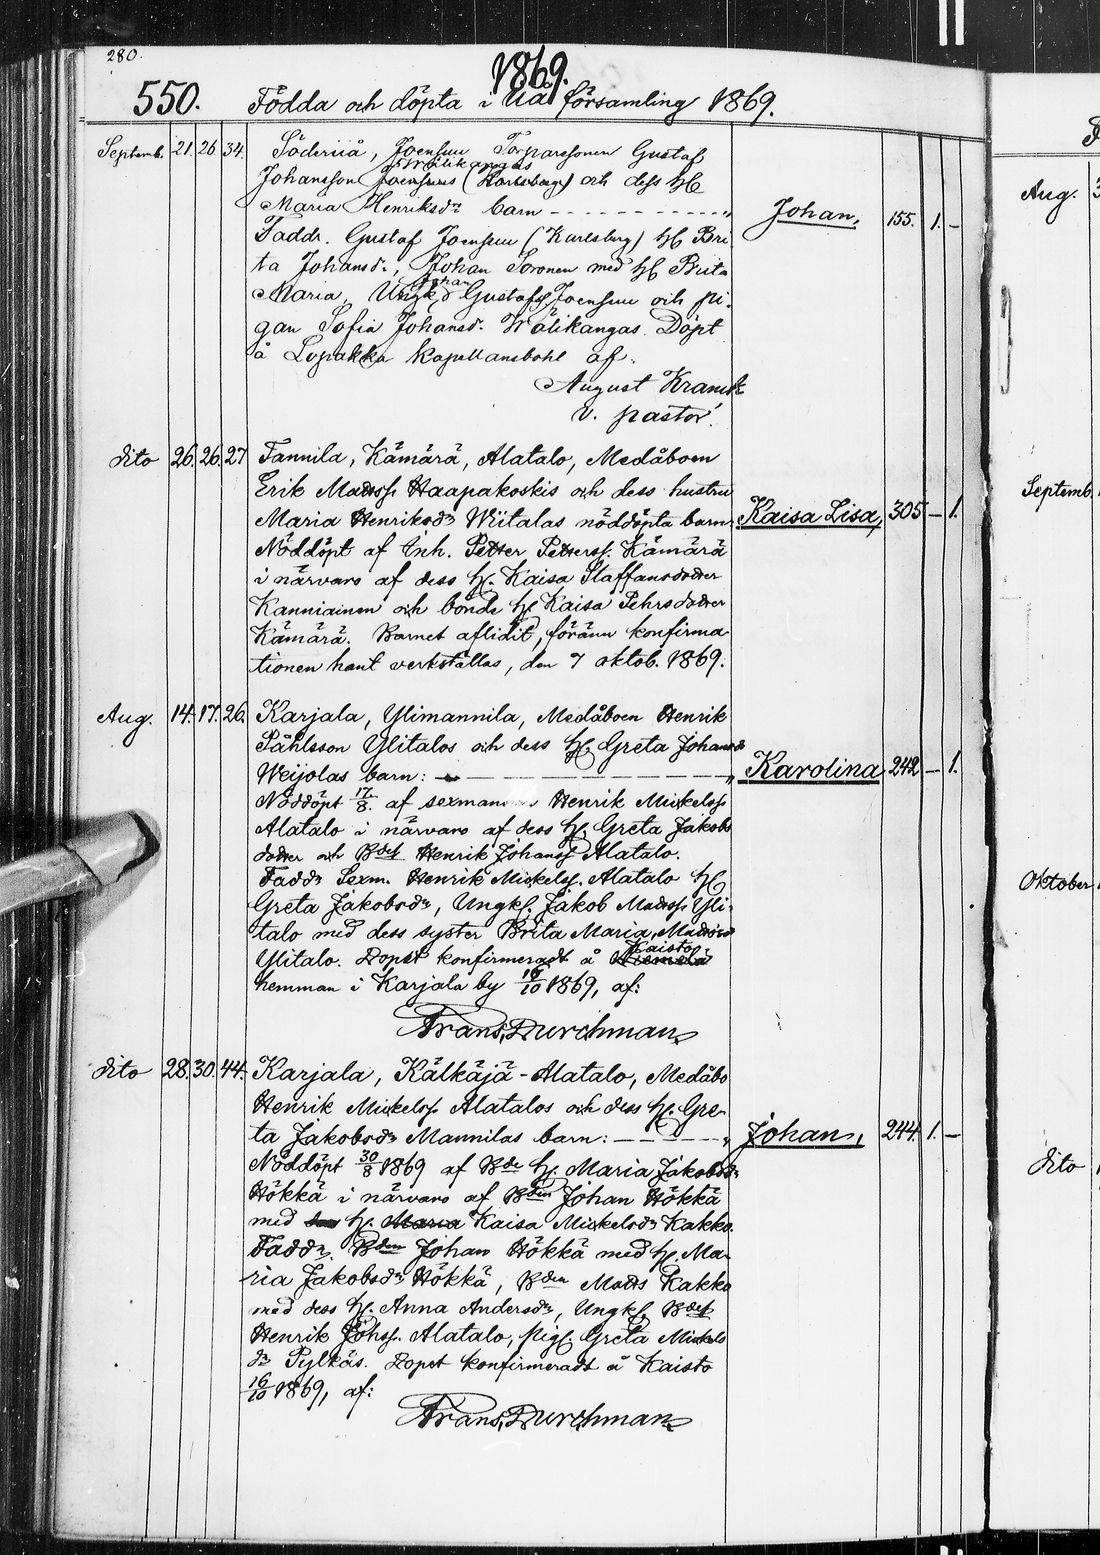 280.
1869.
550. Födda och döpta i Uå församling 1869.
Septemb. 21. 26 34. Söderuå, Joensuu Torparesonen Gustaf
Wälikangas
Johansson Joensuus (Karlsberg) och dess H.
Maria Henriksdr barn - - - - - - - - " Johan, 155. 1. -
Faddr. Gustaf Joensuu (Karlsberg) H. Bri
ta Johansd., Johan Soronen med H. Brita
Johan
Maria, Ungk. Gustafss Joensuu och pi-
gan Sofia Johansd. Wälikangas. Döpt
å Lopakka kapellansbohl af.
August Kranck
v. pastor.
dito 26. 26. 27 Tannila, Kämärä, Alatalo, Medåboen
Erik Matss. Haapakoskis och dess hustru
Maria Henriksdr Wiitalas nöddöpta barn. Kaisa Lisa, 305 - 1.
Nöddöpt af Inh. Petter Petterss. Kämärä
i närvaro af dess H. Kaisa Staffansdotter
Kanniainen och bonde H. Kaisa Pehrsdotter
Kämärä. Barnet aflidit, föränn konfirma-
tionen hant verkställas, den 7 oktob. 1869.
Aug. 14. 17. 26. Karjala, Ylimannila, Medåboen Henrik
Påhlsson Ylitalos och dess H. Greta Johansd
Weijolas barn: - - - - - - " Karolina 242 - 1.
Nöddöpt 17/8. af sexman Henrik Mickelss
Alatalo i närvaro af dess H. Greta Jakobs
dotter och Bdes. Henrik Johanss Alatalo.
Faddr Sexm. Henrik Mickelss. Alatalo H.
Greta Jakobsdr, Ungk. Jakob Matss. Yli-
talo med dess syster Brita Maria Matsd
Kaisto
Ylitalo. Dopet konfirmeradt å Niemelä
hemman i Karjala by 16/10 1869, af:
Frans Durchman
dito 28. 30. 44. Karjala, Kälkäjä-Alatalo, Medåbo
Henrik Mickelss Alatalos och dess H. Gre-
ta Jakobsdr Mannilas barn: - - - - " Johan, 244. 1. -
Nöddöpt 30/8 1869 af Bde H. Maria Jakobsdr
Hökkä i närvaro af Bden Johan Hökkä
med H. Maria Kaisa Mickelsdr Kakko.
Faddr. Bden Johan Hökkä med H. Ma-
ria Jakobsdr Hökkä, Bden Mats Kakko
med dess H. Anna Andersdr, Ungk. Bdes.
Henrik Johss. Alatalo, pig. Greta Mickels
dr Pylkäs. Dopet konfirmeradt å Kaisto
16/10 1869, af:
Frans Durchman
Aug.
Septemb.
Oktober
dito